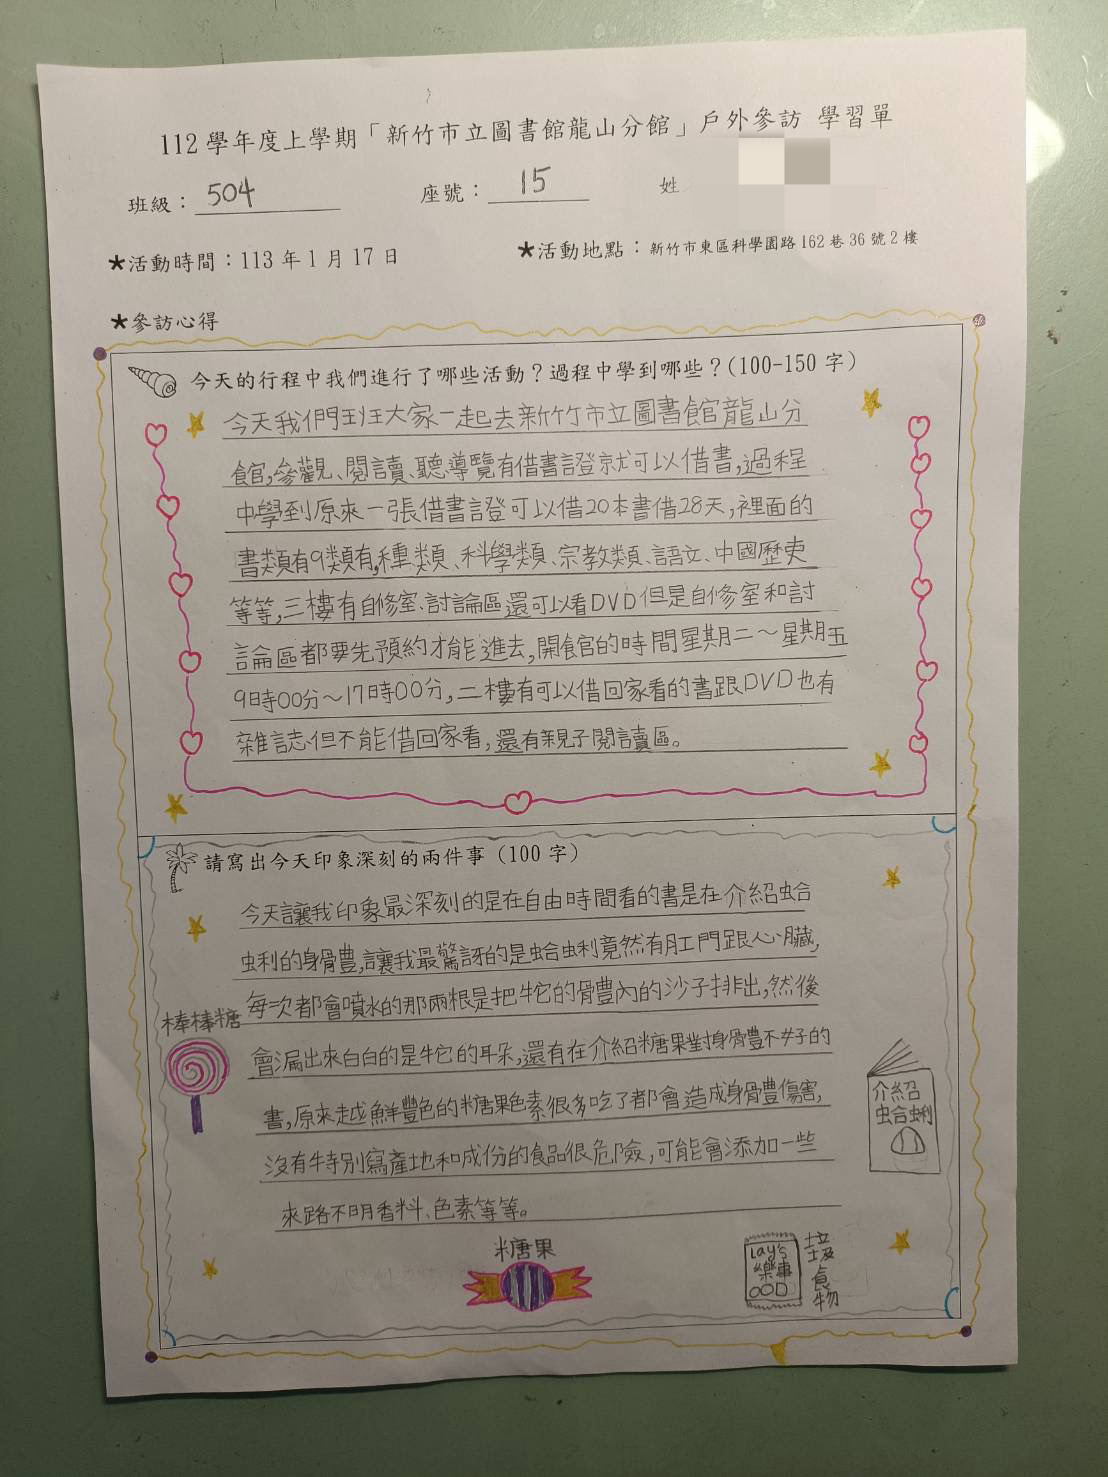 112學年度上學期「新竹市立圖書館龍山分館」戶外參訪 學習單
班級：504 座號：15 姓
★活動時間：113年1月17日 ★活動地點：新竹市東區科學園路162巷36號2樓
★參訪心得
今天的行程中我們進行了哪些活動？過程中學到哪些？(100-150字)
今天我們班大家一起去新竹市立圖書館龍山分
館,參觀、閱讀、聽導覽有借書證就可以借書,過程
中學到原來一張借書證可以借20本書借28天,裡面的
書類有9類有,種類、科學類、宗教類、語文、中國歷史
等等,三樓有自修室、討論區還可以看DVD但是自修室和討
論區都要先預約才能進去,開館的時間星期二～星期五
9時00分～17時00分,二樓有可以借回家看的書跟DVD也有
雜誌但不能借回家看,還有親子閱讀區。
請寫出今天印象深刻的兩件事（100字）
今天讓我印象最深刻的是在自由時間看的書是在介紹蛤
蜊的身體,讓我最驚訝的是蛤蜊竟然有肛門跟心臟,
每次都會噴水的那兩根是把牠的體內的沙子排出,然後
會漏出來白白的是牠的耳朵,還有在介紹糖果對身體不好的
書,原來越鮮豔色的糖果色素很多吃了都會造成身體傷害,
沒有特別寫產地和成份的食品很危險,可能會添加一些
來路不明香料、色素等等。
棒棒糖
介紹
蛤蜊
糖果
Lay's
樂事
垃圾食物